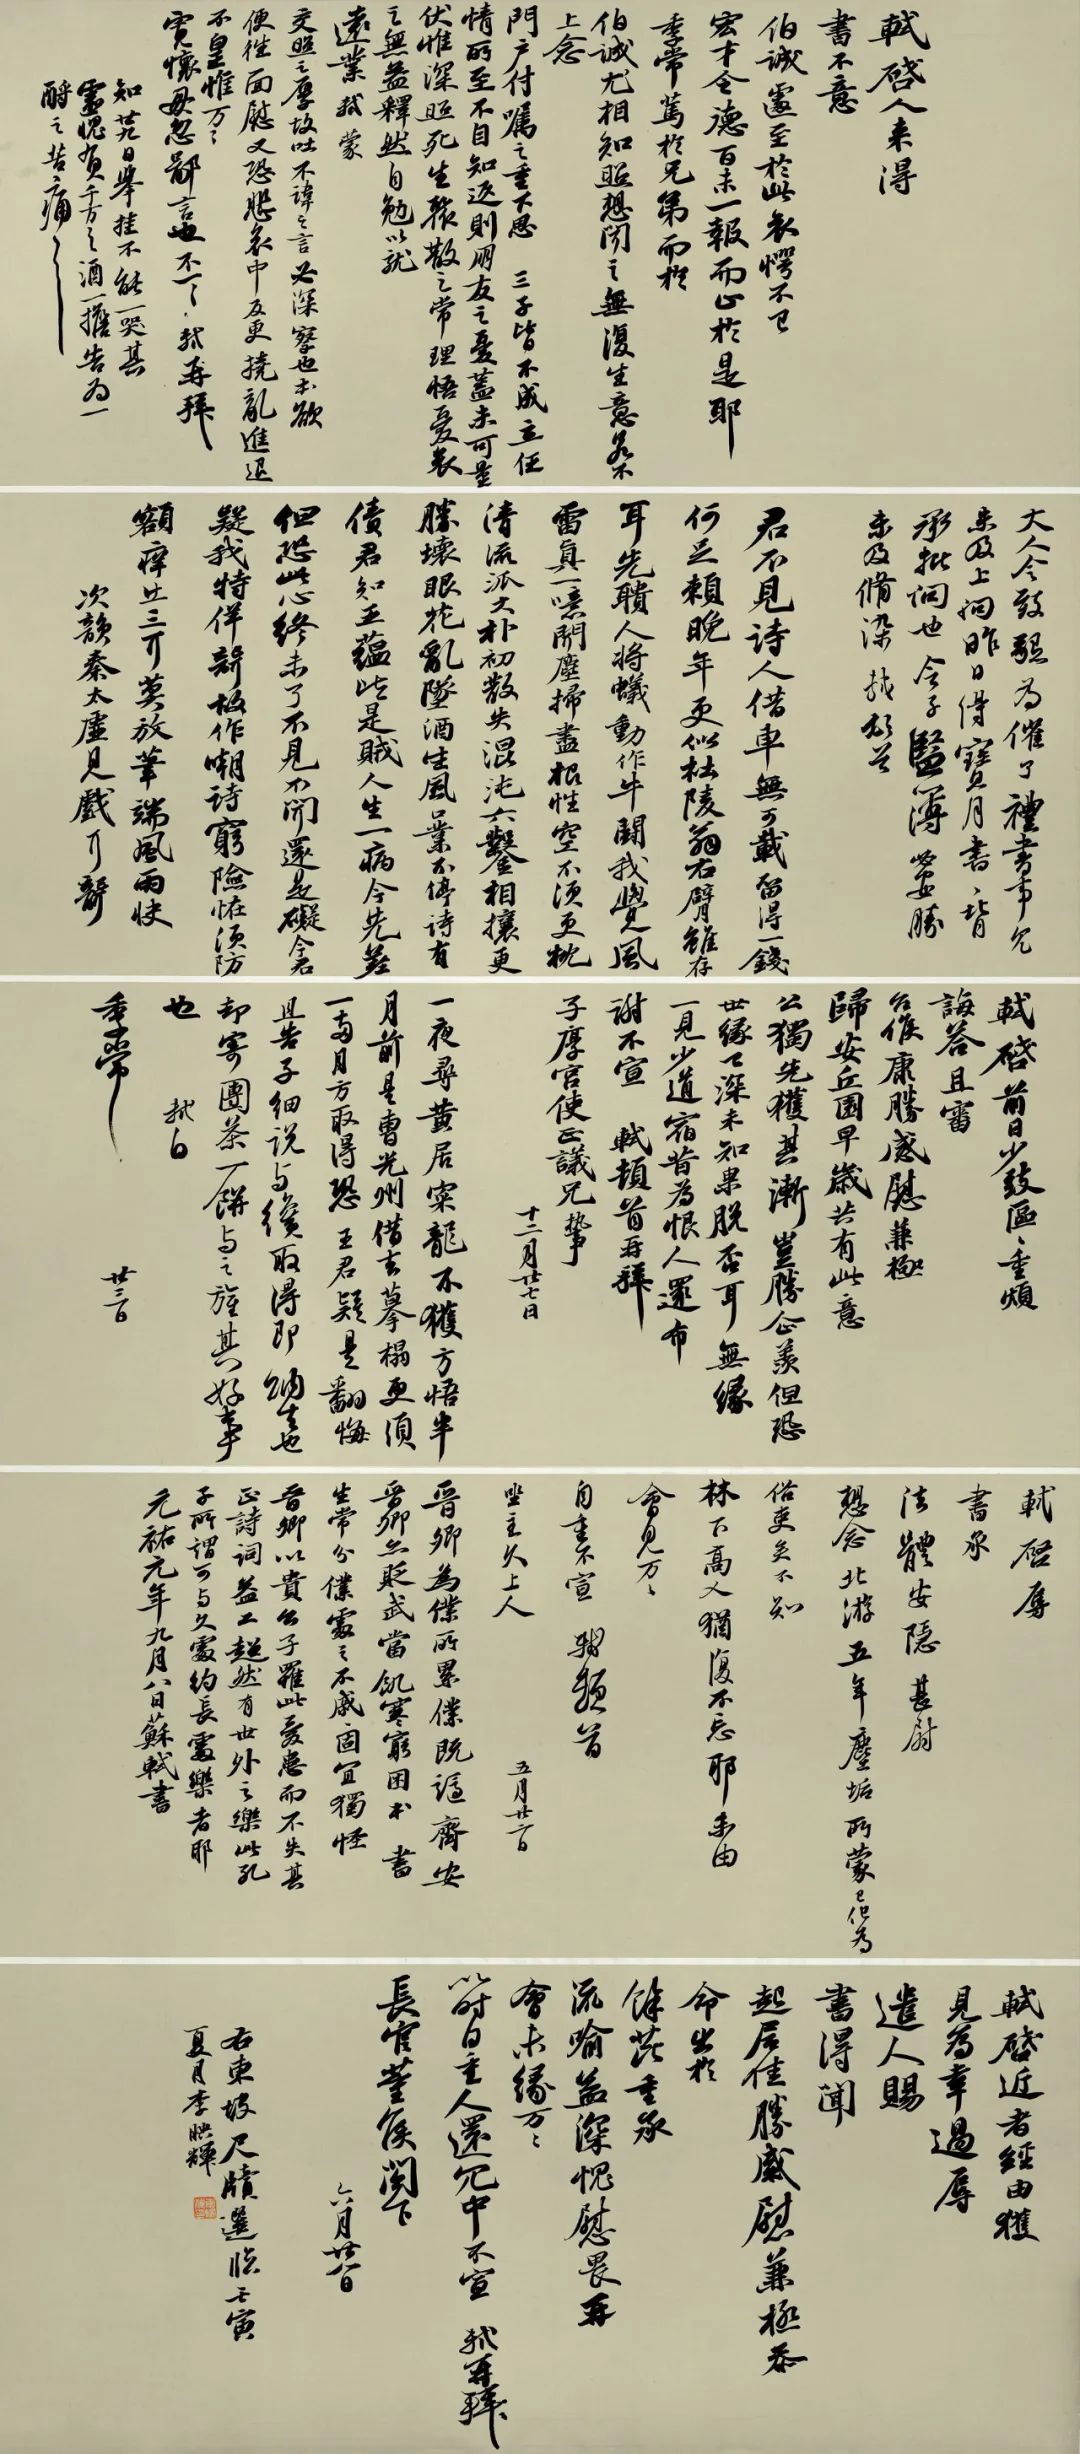 軾啓人来得
書不意
伯誠遽至於此哀愕不已
宏才令德百未一報而止於是耶
季常篤於兄弟而於
伯誠尤相知照想聞之無復生意若不
上念
門户付囑之重下思三子皆不成立任
情所至不自知返則朋友之憂蓋未可量
伏惟深照死生聚散之常理悟憂哀
之無益釋然自勉以就
遠業軾蒙
交照之厚故吐不諱之言必深察也本欲
便往面慰又恐悲哀中反更撓亂進退
不皇惟万々
寬懷毋忽鄙言也不一々軾再拜
知廿九日舉挂不能一哭其
靈愧負千万々酒一擔告為一
酹之苦痛々
大人令致懇為催了禮書事冗
未及上問昨日得寶月書々背
承批問也令子監簿必安勝
未及脩染軾頓首
君不見詩人借車無可載留得一錢
何足賴晚年更似杜陵翁右臂雖存
耳先聵人將蟻動作牛鬪我覺風
雷真一噫聞塵掃盡根性空不須更枕
清流派大朴初散失混沌六鑿相攘更
勝壞眼花亂墜酒生風口業不停詩有
債君知五蘊皆是賊人生一病今先差
但恐此心終未了不見不聞還是礙今君
疑我特佯聾故作嘲詩窮險怪須防
額癢出三耳莫放筆端風雨快
次韻秦太虛見戲耳聾
軾啓前日少致區々重煩
誨答且審
台候康勝感慰兼極
歸安丘園早歲共有此意
公獨先獲其漸豈勝企羨但恐
世緣已深未知果脫否耳無緣
一見少道宿昔為恨人還布
謝不宣軾頓首再拜
子厚宮使正議兄執事
十二月廿七日
一夜尋黃居寀龍不獲方悟半
月前是曹光州借去摹榻更須
一兩月方取得恐王君疑是翻悔
且告子細說與纔取得即納去也
却寄團茶一餅與之旌其好事
也軾白
季常
廿三日
軾啓辱
書承
法體安隱甚慰
想念北游五年塵垢所蒙已化為
俗吏矣不知
林下高人猶復不忘耶未由
會見万々
自重不宣軾頓首
坐主久上人
五月廿二日
晉卿為僕所累僕既謫齊安
晉卿亦貶武當飢寒窮困本書
生常分僕處之不戚固宜獨怪
晉卿以貴公子罹此憂患而不失其
正詩詞益工超然有世外之樂此孔
子所謂可與久處約長處樂者耶
元祐元年九月八日蘇軾書
軾啓近者經由獲
見為幸過辱
遣人賜
書得聞
起居佳勝感慰兼極忝
命出於
餘芘重承
流喻益深愧慰畏再
會未緣万々
以時自重人還冗中不宣軾再拜
長官董侯閣下
六月廿八日
右東坡尺牘選臨壬寅
夏月李映輝